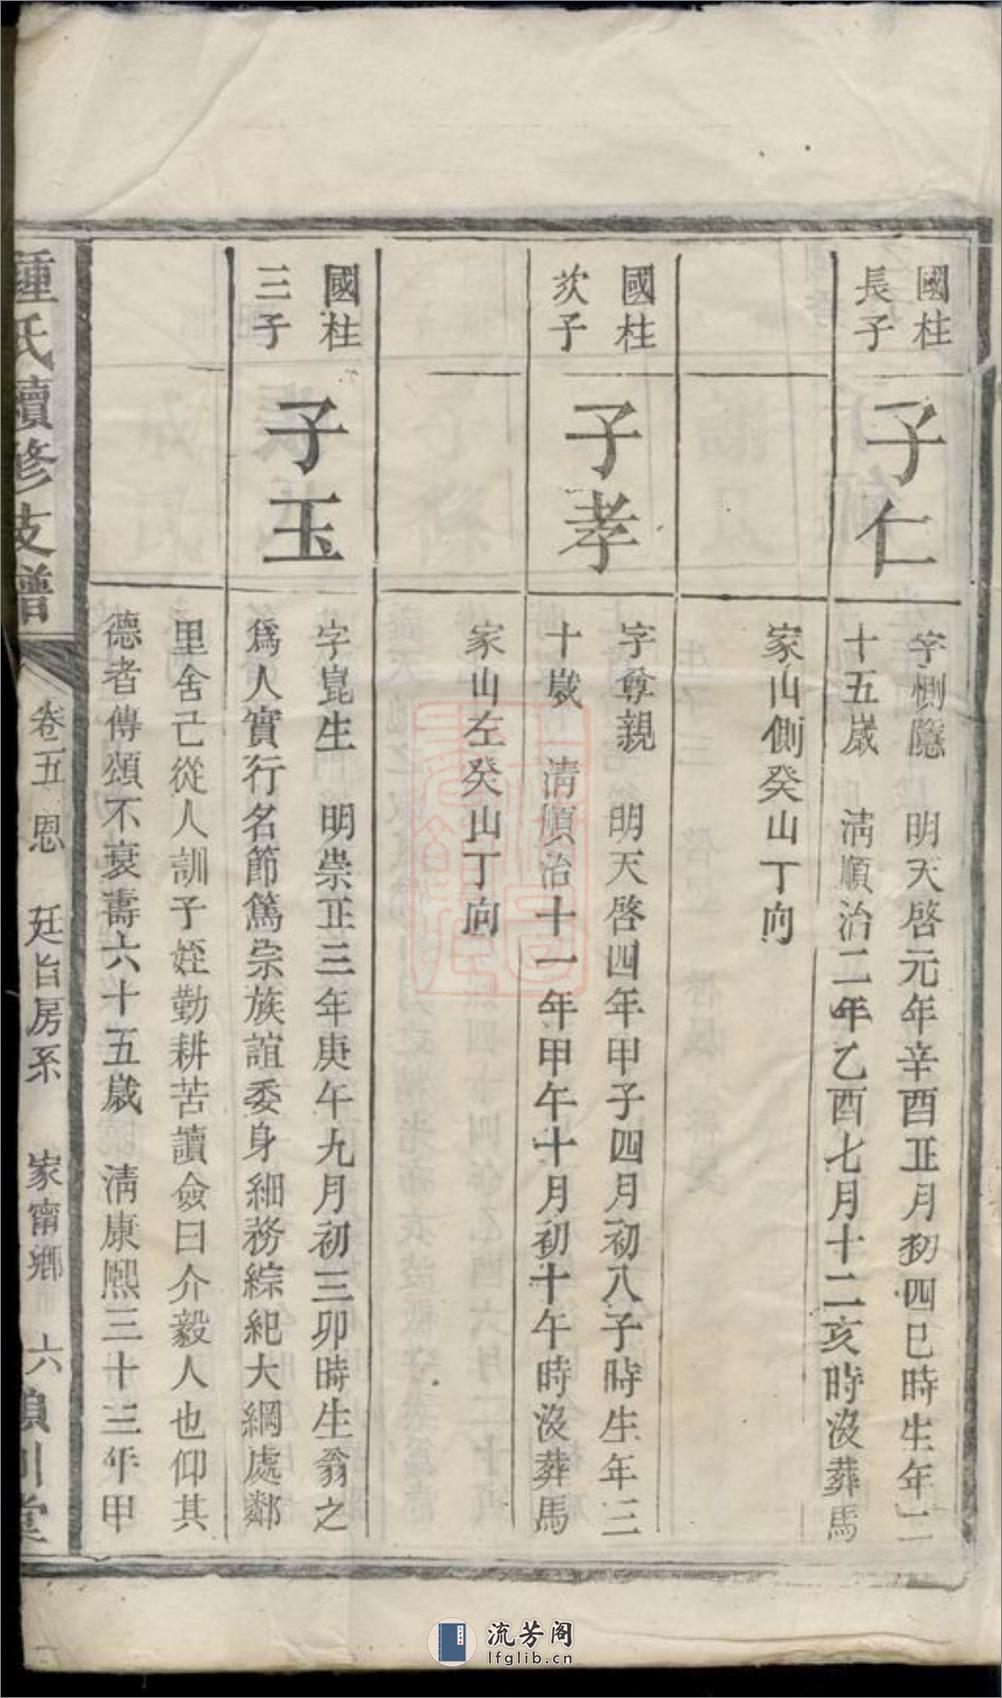 國柱
長子
子仁
字惻隱　明天啓元年辛酉正月初四巳時生年二
十五歲　清順治二年乙酉七月十二亥時沒葬馬
家山側癸山丁向
國柱
次子
子孝
字尊親　明天啓四年甲子四月初八子時生年三
十歲　清順治十一年甲午十月初十午時沒葬馬
家山左癸山丁向
國柱
三子
子玉
字崑生　明崇正三年庚午九月初三卯時生翁之
爲人實行名節篤宗族誼委身細務綜紀大綱處鄰
里舍己從人訓子姪勤耕苦讀僉曰介毅人也仰其
德者傳頌不衰壽六十五歲　清康熙三十三年甲
鍾氏續修支譜
卷五　恩　廷旨房系　家甯鄉　六
潁川堂
流芳阁
lfglib.cn